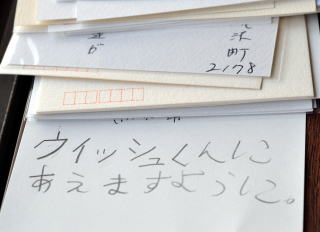 町
2178
ウイッシュくんに
あえますように。